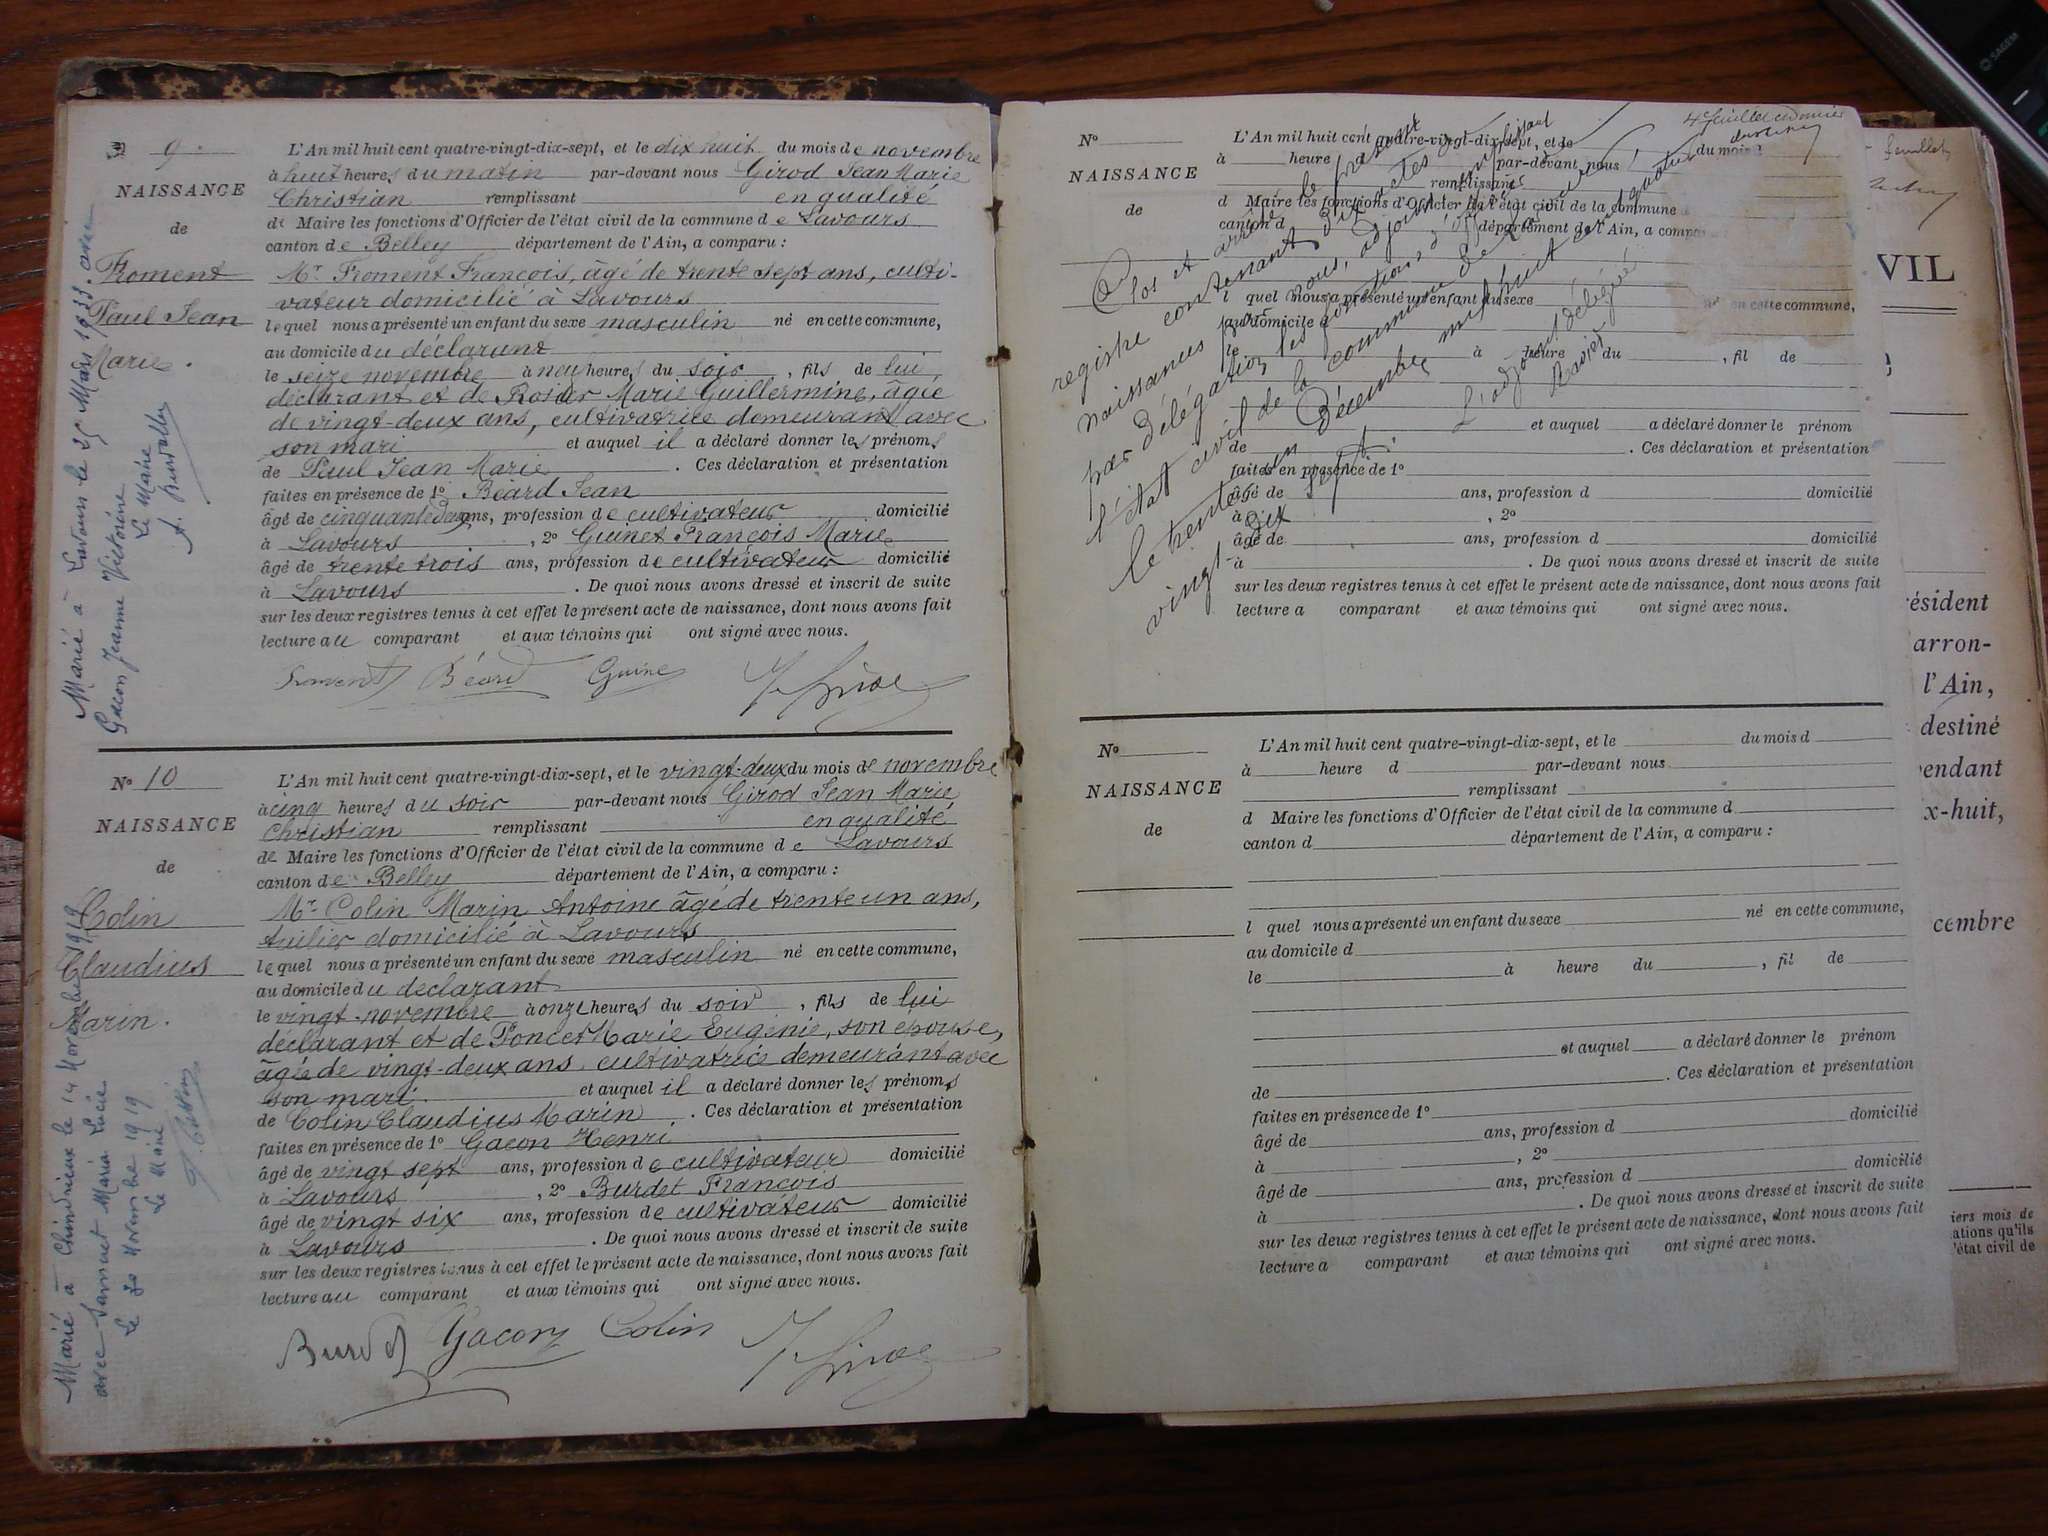 9.
NAISSANCE
de
Froment
Paul Jean
Marie.
L'An mil huit cent quatre-vingt-dix-sept, et le dix huit du mois de novembre
à huit heures du matin par-devant nous Girod Jean Marie
Christian remplissant en qualité
de Maire les fonctions d'Officier de l'état civil de la commune de Lavours
canton de Belley département de l'Ain, a comparu :
Mr Froment François, âgé de trente sept ans, culti-
vateur domicilié à Lavours
lequel nous a présenté un enfant du sexe masculin né en cette commune,
au domicile du déclarant
le seize novembre à neuf heures du soir, fils de lui
déclarant et de Rosier Marie Guillermine, âgée
de vingt-deux ans, cultivatrice demeurant avec
son mari et auquel il a déclaré donner les prénoms
de Paul Jean Marie. Ces déclaration et présentation
faites en présence de 1° Béard Jean
âgé de cinquante deux ans, profession de cultivateur domicilié
à Lavours, 2° Guinet François Marie
âgé de trente trois ans, profession de cultivateur domicilié
à Lavours. De quoi nous avons dressé et inscrit de suite
sur les deux registres tenus à cet effet le présent acte de naissance, dont nous avons fait
lecture au comparant et aux témoins qui ont signé avec nous.
Froment Béard Guine
Marié à Lavours le 25 Mars 1933 avec
Gacon Jeanne Victorine
Le Maire
No 10
NAISSANCE
de
Colin
Claudius
Marin.
L'An mil huit cent quatre-vingt-dix-sept, et le vingt-deux du mois de novembre
à cinq heures du soir par-devant nous Girod Jean Marie
Christian remplissant en qualité
de Maire les fonctions d'Officier de l'état civil de la commune de Lavours
canton de Belley département de l'Ain, a comparu :
Mr Colin Marin Antoine âgé de trente un ans,
tuilier domicilié à Lavours
lequel nous a présenté un enfant du sexe masculin né en cette commune,
au domicile du déclarant
le vingt novembre à onze heures du soir, fils de lui
déclarant et de Poncet Marie Eugénie, son épouse,
âgée de vingt-deux ans, cultivatrice demeurant avec
son mari. et auquel il a déclaré donner les prénoms
de Colin Claudius Marin. Ces déclaration et présentation
faites en présence de 1° Gacon Henri
âgé de vingt sept ans, profession de cultivateur domicilié
à Lavours, 2° Burdet François
âgé de vingt six ans, profession de cultivateur domicilié
à Lavours. De quoi nous avons dressé et inscrit de suite
sur les deux registres tenus à cet effet le présent acte de naissance, dont nous avons fait
lecture au comparant et aux témoins qui ont signé avec nous.
Burdet Gacon Colin
Marié à Chindrieux le 14 Novembre 1919
avec Maria Lucie
Le 30 Novembre 1919
Le Maire
4e feuillet et dernier
No
NAISSANCE
de
L'An mil huit cent quatre-vingt-dix-sept, et le du mois d
à heure par-devant nous
remplissant
d Maire les fonctions d'Officier de l'état civil de la commune
canton d département de l'Ain, a compa
l quel nous a présenté un enfant du sexe né en cette commune,
au domicile d
le à heure du , fil de
et auquel a déclaré donner le prénom
de . Ces déclaration et présentation
faites en présence de 1°
âgé de ans, profession d domicilié
à , 2°
âgé de ans, profession d domicilié
à . De quoi nous avons dressé et inscrit de suite
sur les deux registres tenus à cet effet le présent acte de naissance, dont nous avons fait
lecture a comparant et aux témoins qui ont signé avec nous.
Clos et arrêté le présent
registre contenant dix actes de
naissances par nous, adjoint
par délégation les fonctions d'officier de
l'état civil de la commune de Lavours
le trente un Décembre mil huit cent quatre
vingt-dix sept.
L'adjoint délégué
No
NAISSANCE
de
L'An mil huit cent quatre-vingt-dix-sept, et le du mois d
à heure d par-devant nous
remplissant
d Maire les fonctions d'Officier de l'état civil de la commune d
canton d département de l'Ain, a comparu :
l quel nous a présenté un enfant du sexe né en cette commune,
au domicile d
le à heure du , fil de
et auquel a déclaré donner le prénom
de . Ces déclaration et présentation
faites en présence de 1°
âgé de ans, profession d domicilié
à , 2°
âgé de ans, profession d domicilié
à . De quoi nous avons dressé et inscrit de suite
sur les deux registres tenus à cet effet le présent acte de naissance, dont nous avons fait
lecture à comparant et aux témoins qui ont signé avec nous.
feuillet
VIL
ésident
arron-
l'Ain,
destiné
endant
x-huit,
cembre
iers mois de
ations qu'ils
l'état civil de
SAGEM